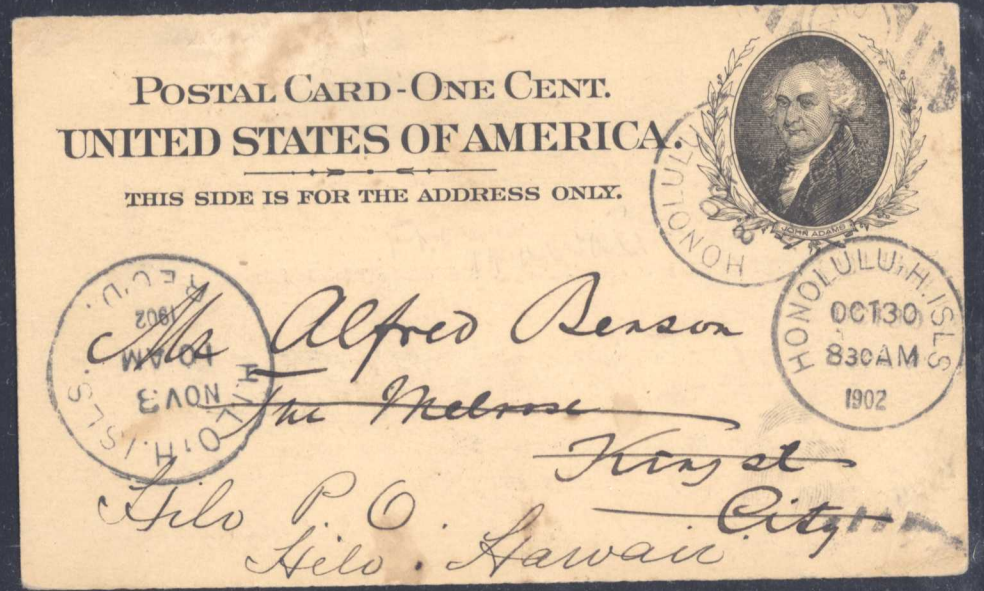 POSTAL CARD - ONE CENT.
UNITED STATES OF AMERICA.
THIS SIDE IS FOR THE ADDRESS ONLY.
JOHN ADAMS
HONOLULU
HONOLULU, H. ISLS
OCT 30
8 30 AM
1902
HILO, H. ISLS.
NOV 3
10 AM
1902
REC'D.
Mr Alfred Benson
The Melrose
King st
City
Hilo P. O.
Hilo. Hawaii.